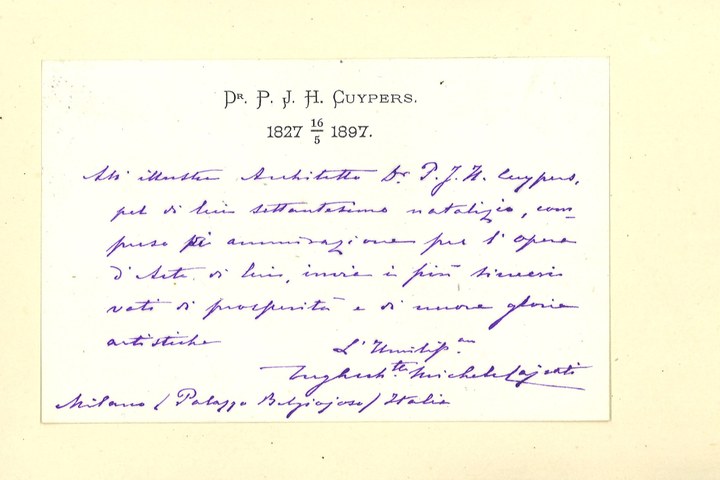 Dr. P. J. H. CUYPERS.
1827 16/5 1897.
All' illustre Architetto Dr. P. J. H. Cuypers,
pel di lui settantesimo natalizio, com-
preso di ammirazione per l' opera
d'Arte di lui, invia i più sinceri
voti di prosperità e di nuove glorie
artistiche
L'
Michele
Milano (Palazzo Belgiojoso) Italia